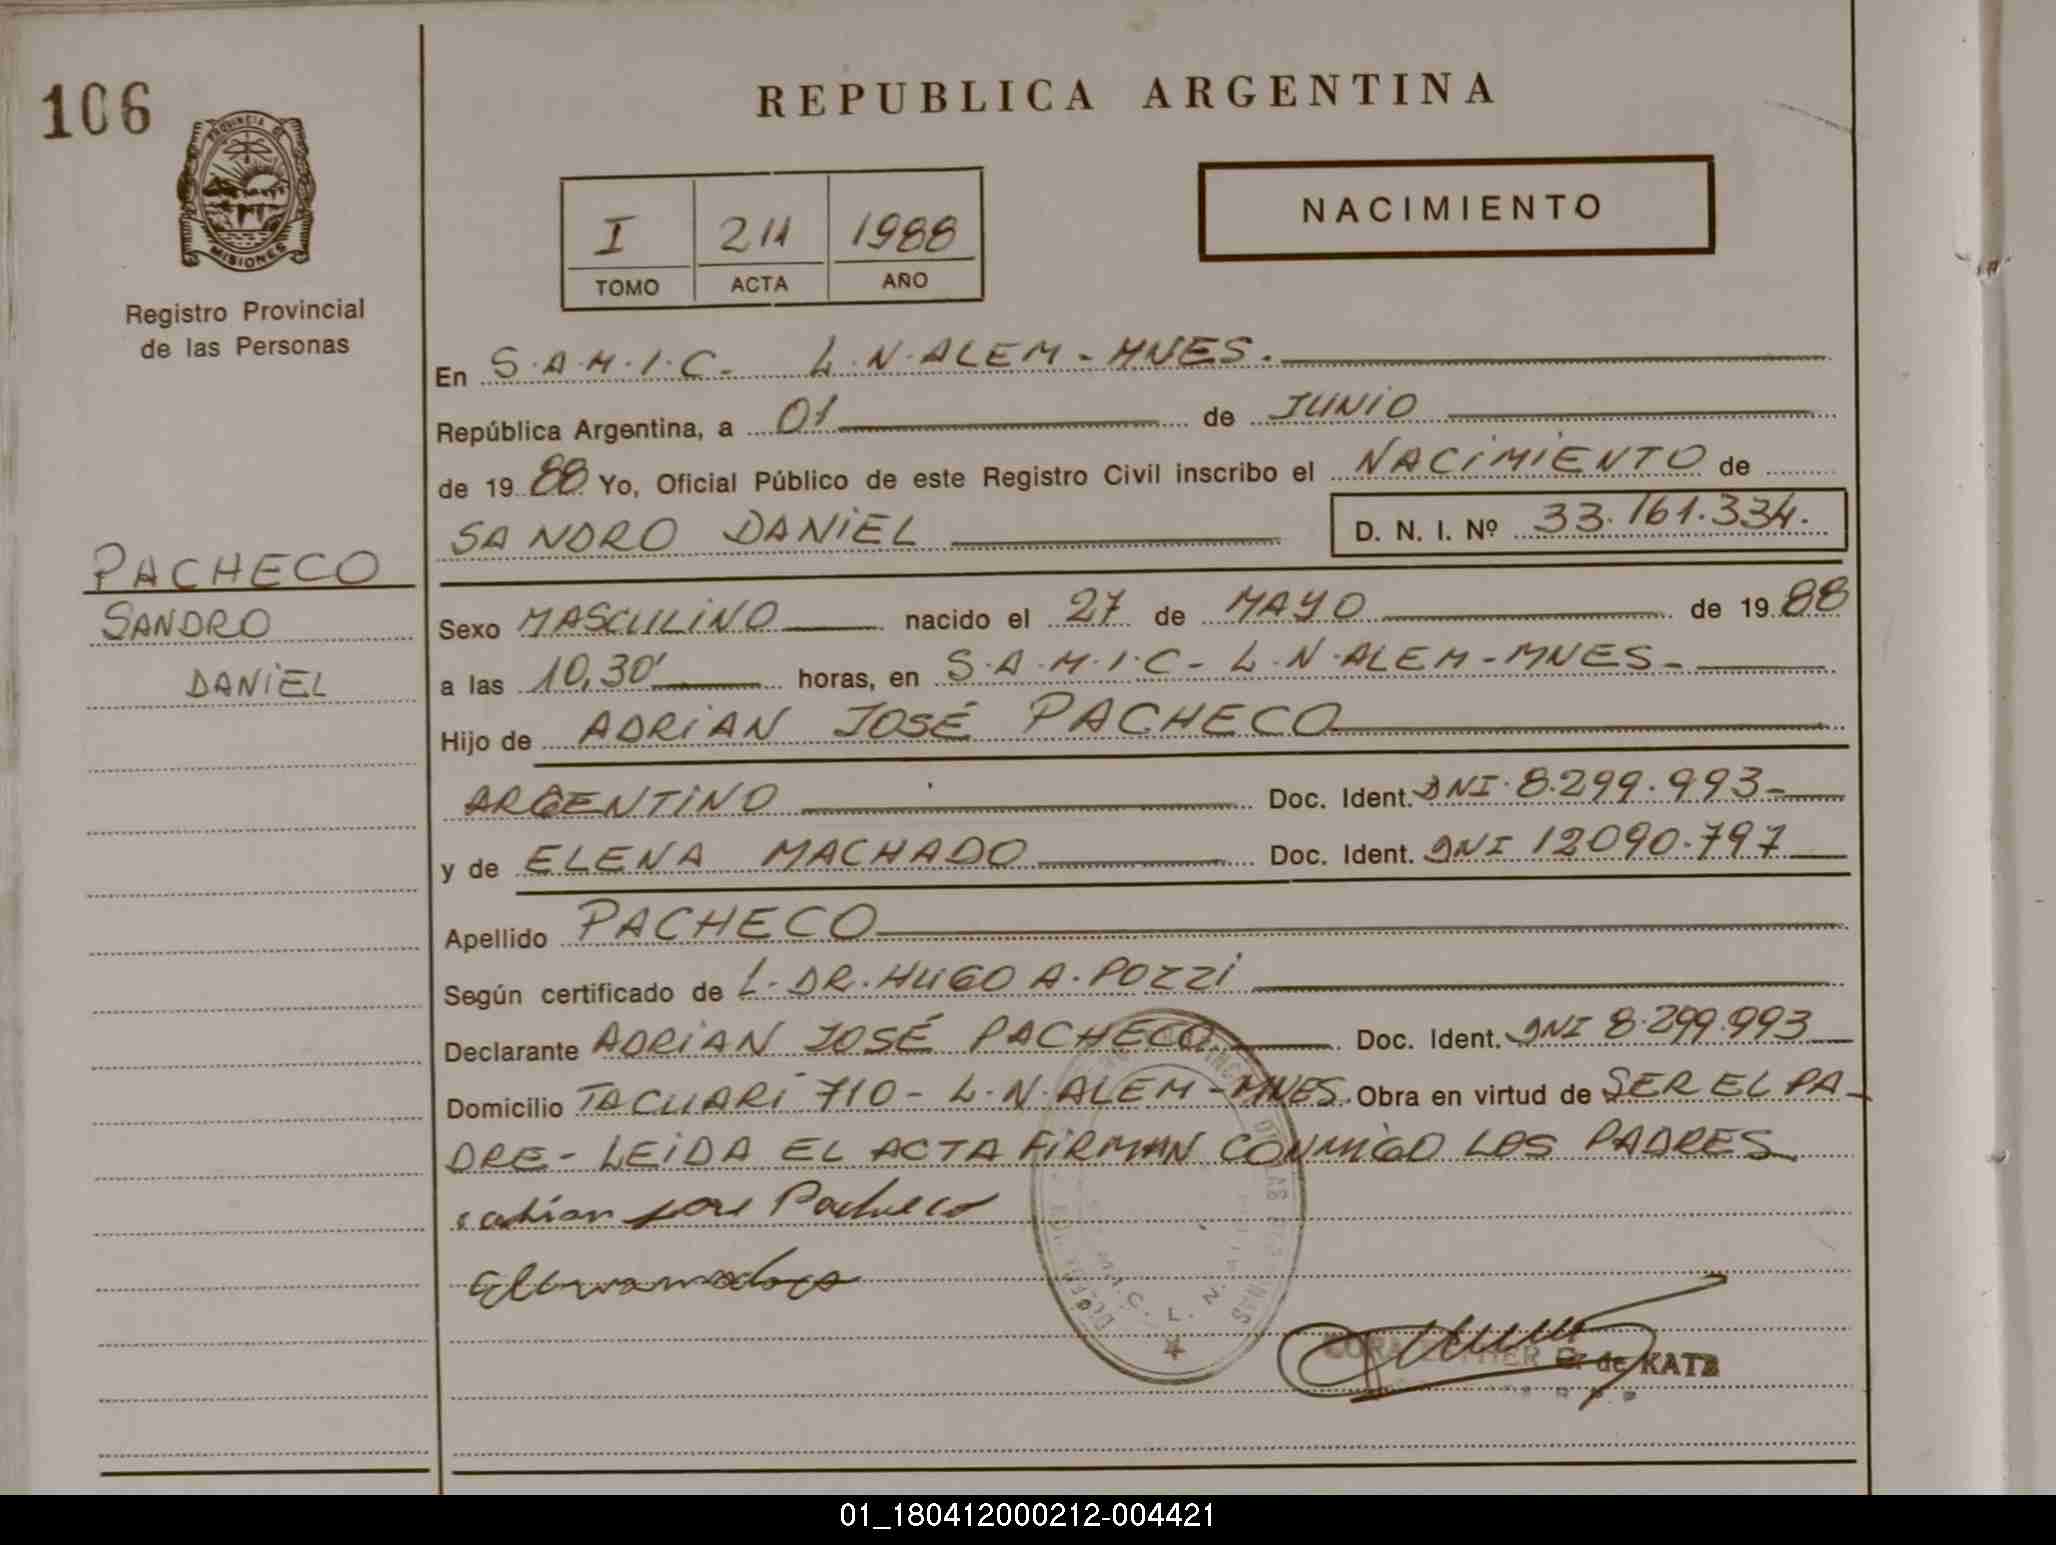 106
PROVINCIA DE
MISIONES
Registro Provincial
de las Personas
PACHECO
SANDRO
DANIEL
REPUBLICA ARGENTINA
I 211 1988
TOMO ACTA AÑO
NACIMIENTO
En S.A.M.I.C- L.N.ALEM-MNES.
República Argentina, a 01 de JUNIO
de 1988 Yo, Oficial Público de este Registro Civil inscribo el NACIMIENTO de
SANDRO DANIEL D. N. I. Nº 33.161.334.
Sexo MASCULINO nacido el 27 de MAYO de 1988
a las 10,30' horas, en S.A.M.I.C- L.N.ALEM-MNES-
Hijo de ADRIAN JOSÉ PACHECO
ARGENTINO Doc. Ident. DNI.8.299.993-
y de ELENA MACHADO Doc. Ident. DNI 12090.797
Apellido PACHECO
Según certificado de L.DR.HUGO A.POZZI
Declarante ADRIAN JOSÉ PACHECO Doc. Ident. DNI 8.299.993
Domicilio TACUARI 710- L.N.ALEM-MNES. Obra en virtud de SER EL PA-
DRE- LEIDA EL ACTA FIRMAN CONMIGO LOS PADRES
adrian jose Pacheco
de KATZ
01_180412000212-004421